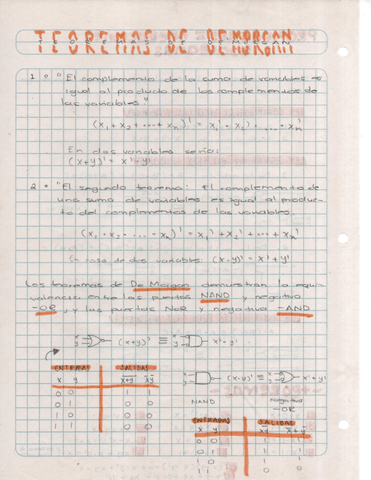 TEOREMAS DE DEMORGAN
1 • "El complemento de la suma de variables es
igual al producto de los complementos de
las variables"
(x₁ + x₂ + ... + xₙ)' = x₁' · x₂' · ... · xₙ'
En dos variables sería:
(x+y)' = x' · y'
2 • "El segundo teorema: El complemento de
una suma de variables es igual al produc-
to del complementos de las variables.
(x₁ · x₂ · ... · xₙ)' = x₁' + x₂' + ... + xₙ'
En caso de dos variables: (x·y)' = x' + y'
Los teoremas de De Morgan demuestran la equi-
valencia entre las puertas NAND y negativo
-OR, y las puertas NOR y negativo -AND.
x y (x+y)' ≡ x y x' · y'
ENTRADAS SALIDAS
x y
0 0 1 1
0 1 0 0
1 0 0 0
1 1 0 0
x y (x·y)' ≡ x y x' + y'
NAND negativo
-OR
ENTRADAS SALIDAS
x y
0 0 1 1
0 1 1 1
1 0 1 1
1 1 0 0